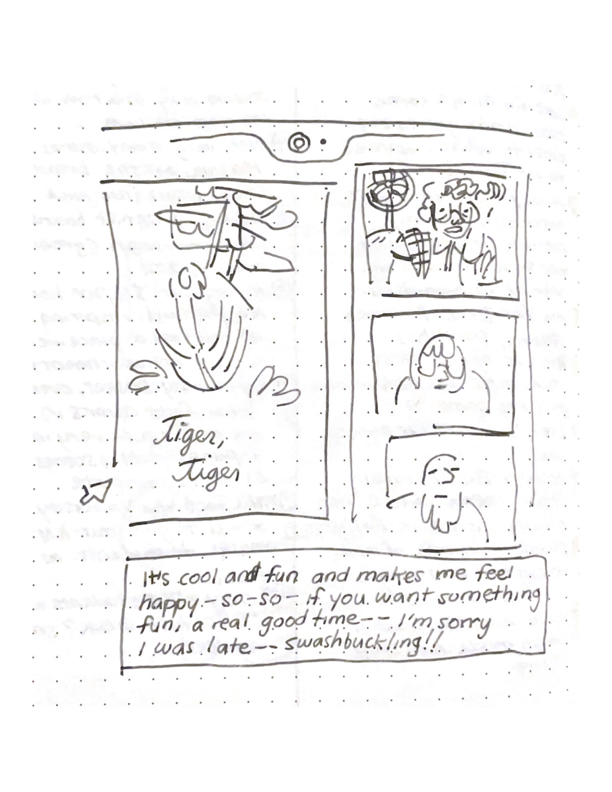 Tiger,
Tiger
It's cool and fun and makes me feel
happy - so-so - if you want something
fun, a real good time -- I'm sorry
I was late -- swashbuckling!!